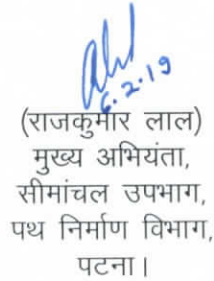 6.2.19
(राजकुमार लाल)
मुख्य अभियंता,
सीमांचल उपभाग,
पथ निर्माण विभाग,
पटना।